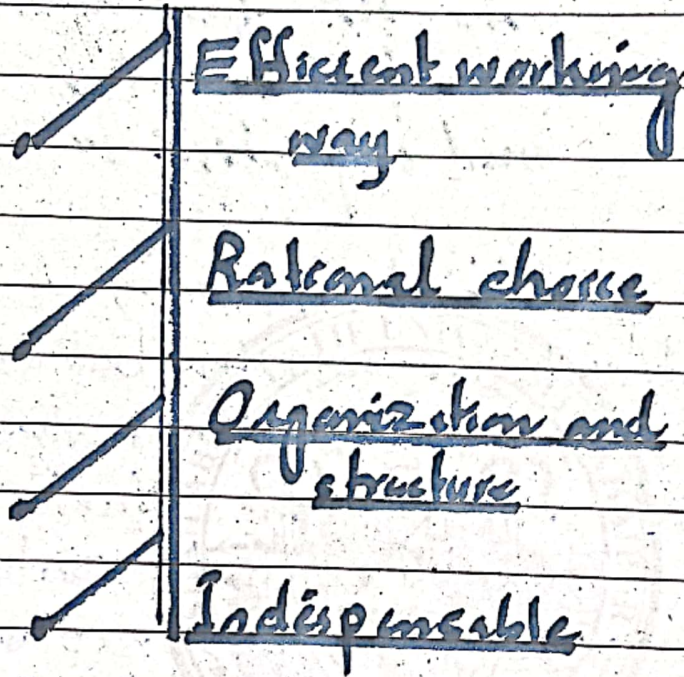 Efficient working
way
Rational choice
Organization and
structure
Indispensable